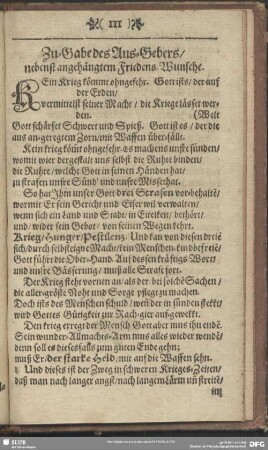 ( III )
Zu-Gabe des Aus-Gebers/
nebenst angehängtem Friedens Wunsche.
Kein Krieg kömmt ohngefehr. Gott ists/ der auf
der Erden/
vermittelst seiner Macht/ die Kriege lässet wer-
den. (Welt
Gott schärfet Schwer und Spieß. Gott ist es/ der die
aus angeregtem Zorn/ mit Waffen überfällt.
Kein krieg köm̃t ohngefehr. es machens unsre sünden/
womit wier dergestalt uns selbst die Ruhte binden/
die Ruhte/ welche Gott in seinen Händen hat/
zu strafen unsre Sünd' und unsre Missethat.
So hat Ihm unser Gott drei Strafen vorbehaltē/
wormit Er sein Gericht und Eifer wil verwalten/
wenn sich ein Land und Stadt/ in Eitelkeit/ bethört/
und/ wider sein Gebot/ von seinen Wegen kehrt.
Krieg/ Hunger/ Pestilenz. Und kan von diesen dreiē
sich/ durch selbsteigne Macht/ kein Menschen-kind befreiē/
Gott führt die Ober-Hand. Auf dessen kräftigs Wort
und unsre Bässerung/ muß alle Strafe fort.
Der Krieg steht vornen an/ als der bei solchē Sachen/
die aller-gröste Noht und Sorge pfleget zu machen.
Doch ists des Menschen schuld/ weil der in sünden steckt/
wird Gottes Gütigkeit zur Rach-gier aufgeweckt.
Den krieg erregt der Mensch Gott aber nuns ihn endē.
Sein wunder-Allmachts-Arm muss alles wieder wendē/
denn soll es diesesfalls zum guten Ende gehn;
muß Er/ der starke Held/ mit auf die Waffen sehn.
Und dieses ist der Zweg in schweren Krieges-Zeiten/
daß man nach langer angst/ nach langem lärm uñ streitē/